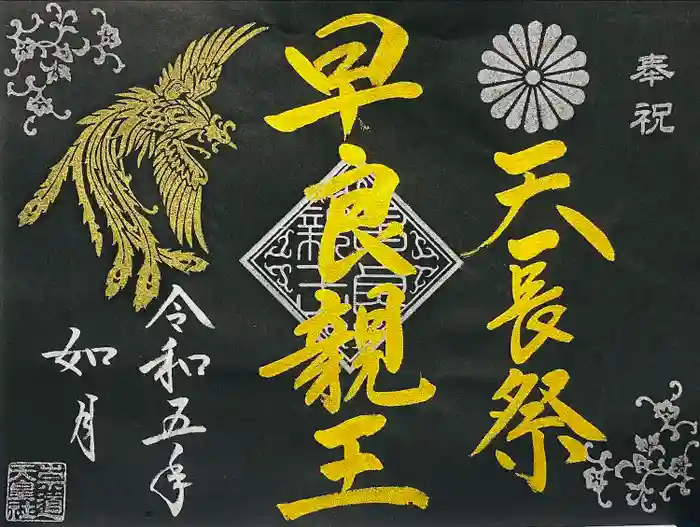 奉祝
天長祭
早良親王
令和五年
如月
崇道
天皇社